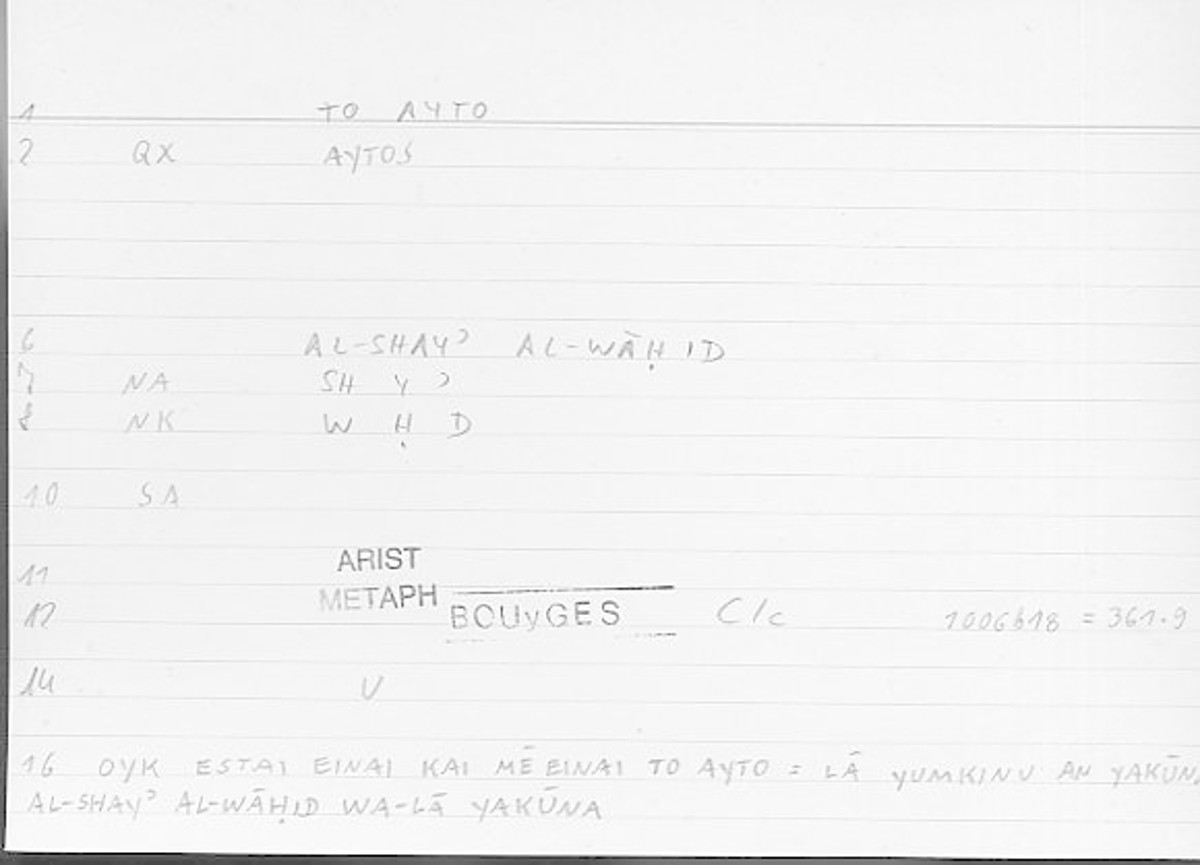 1 TO AYTO
2 QX AYTOS
6 AL-SHAYʾ AL-WĀḤID
7 NA SH Y ʾ
8 NK W Ḥ D
10 SA
11 ARIST
12 METAPH BOUYGES C/c 1006b18 = 361.9
14 V
16 OYK ESTAI EINAI KAI MĒ EINAI TO AYTO = LĀ YUMKINU AN YAKŪNA
AL-SHAYʾ AL-WĀḤID WA-LĀ YAKŪNA